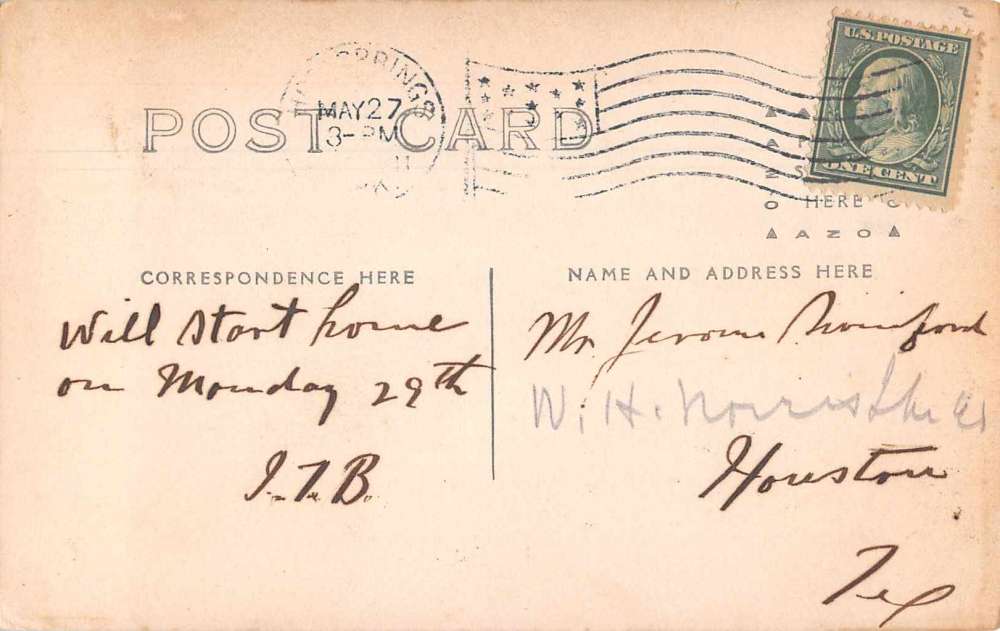 U.S. POSTAGE
ONE CENT
SPRINGS
MAY 27
3-PM
11
POST CARD
HERE
AZO
CORRESPONDENCE HERE
NAME AND ADDRESS HERE
Will start home
on Monday 29th
Mr. Jerome
W. H. Norris
Houston
Tex